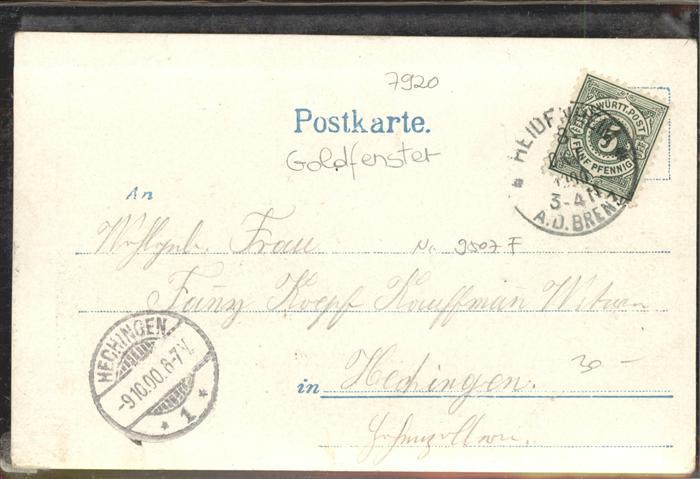 7920
Postkarte.
Goldfenster
K. WÜRTT. POST
5
FÜNF PFENNIG
HEIDENHEIM
8
1900
3-4 N
A.D. BRENZ
An
Wohlgeb. Frau
No 9507 F
Fanny Koepf Kauffmann Witwe
HECHINGEN.
-9.10.00.6-7V.
* 1 *
in Hechingen.
20 -
Hohenzollern.